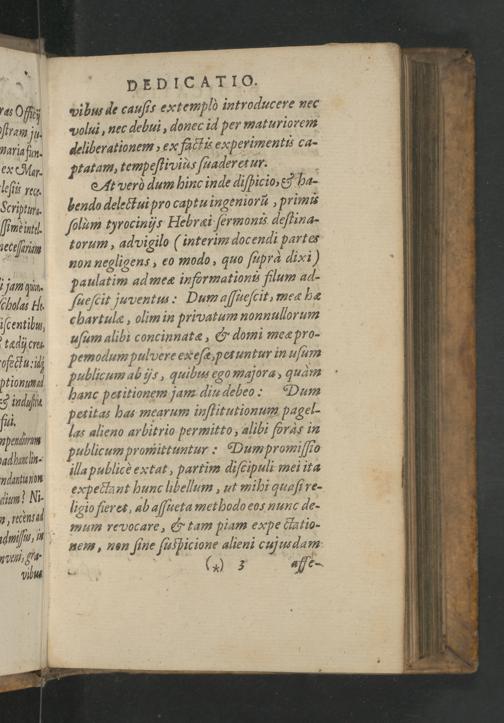 ras Officij
ostram ju-
naria fun-
ex Mar-
lesiis rece
Scriptura-
ssime intel-
necessarium
i jam quon-
scholas He-
iscentibus,
tædij crea-
ofectu: idq
ptionum ad
& industria
fui.
mpendiorum
ad hanc lin-
ndantia non
dium? Ni-
n, recens ad
admissus, in
nveni, gra-
vibus
DEDICATIO.
vibus de causis extemplò introducere nec
volui, nec debui, donec id per maturiorem
deliberationem, ex factis experimentis ca-
ptatam, tempestiviùs suaderetur.
At verò dum hinc inde dispicio, & ha-
bendo delectui pro captu ingeniorū, primis
solùm tyrocinijs Hebræi sermonis destina-
torum, advigilo (interim docendi partes
non negligens, eo modo, quo suprà dixi)
paulatim ad meæ informationis filum ad-
suescit juventus: Dum assuescit, meæ hæ
chartulæ, olim in privatum nonnullorum
usum alibi concinnatæ, & domi meæ pro-
pemodum pulvere exesæ, petuntur in usum
publicum ab ijs, quibus ego majora, quàm
hanc petitionem jam diu debeo: Dum
petitas has mearum institutionum pagel-
las alieno arbitrio permitto, alibi foràs in
publicum promittuntur: Dum promissio
illa publicè extat, partim discipuli mei ita
expectant hunc libellum, ut mihi quasi re-
ligio fieret, ab assueta methodo eos nunc de-
mum revocare, & tam piam expectatio-
nem, non sine suspicione alieni cujusdam
(*) 3 affe-